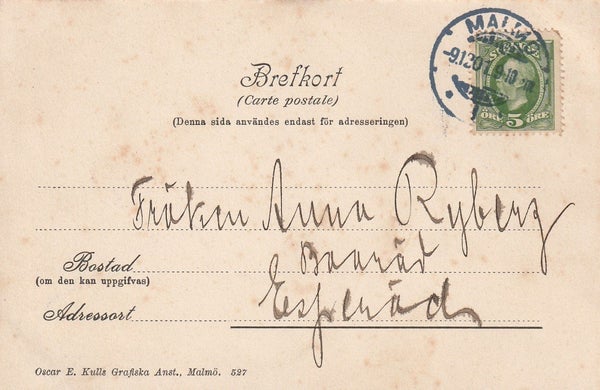 MALMÖ
SVERIGE
ÖRE 5 ÖRE
Brefkort
(Carte postale)
(Denna sida användes endast för adresseringen)
Fröken Anna Ryberg
Bostad
(om den kan uppgifvas)
Adressort
Oscar E. Kulls Grafiska Anst., Malmö. 527